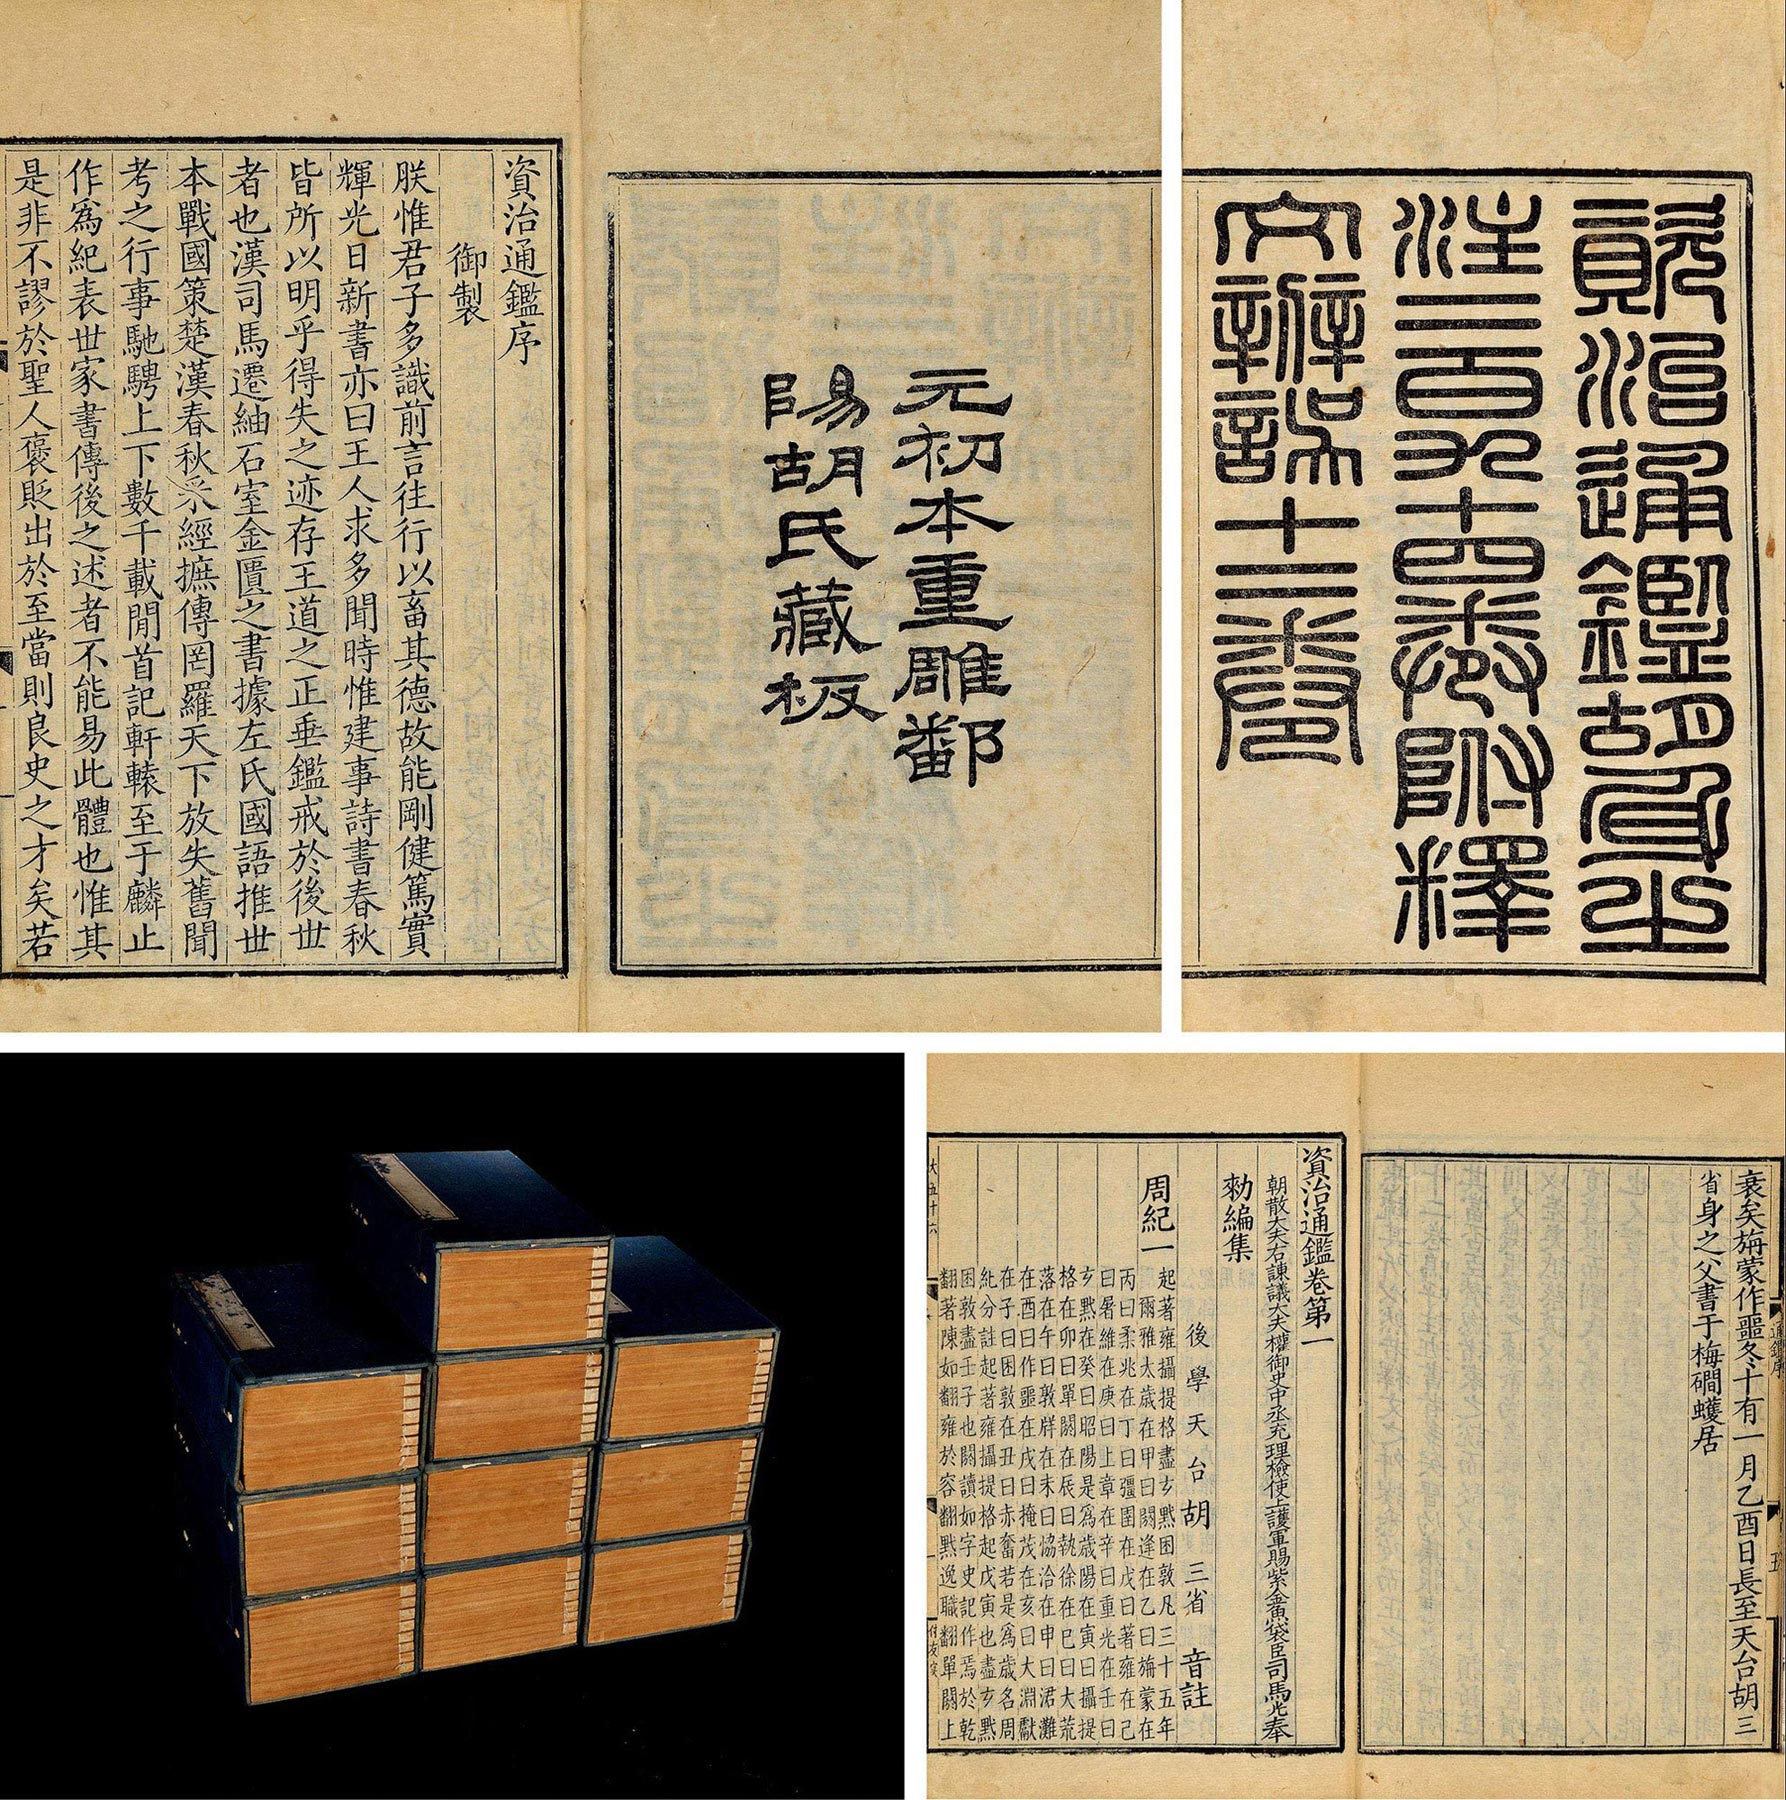 資治通鑑胡身之
注二百九十四卷附釋
文辨誤十二卷
元初本重雕鄱
陽胡氏藏板
資治通鑑序
御製
朕惟君子多識前言往行以畜其德故能剛健篤實
輝光日新書亦曰王人求多聞時惟建事詩書春秋
皆所以明乎得失之迹存王道之正垂鑑戒於後世
者也漢司馬遷紬石室金匱之書據左氏國語推世
本戰國策楚漢春秋采經摭傳罔羅天下放失舊聞
考之行事馳騁上下數千載閒首記軒轅至于麟止
作爲紀表世家書傳後之述者不能易此體也惟其
是非不謬於聖人褒貶出於至當則良史之才矣若
通鑑序
五
衰矣旃蒙作噩冬十有一月乙酉日長至天台胡三
省身之父書于梅磵蠖居
資治通鑑卷第一
朝散大夫右諫議大夫權御史中丞充理檢使上護軍賜紫金魚袋臣司馬光奉
勑編集
後學天台胡三省音註
周紀一
起著雍攝提格盡玄黓困敦凡三十五年
爾雅太歲在甲曰閼逢在乙曰旃蒙在
丙曰柔兆在丁曰彊圉在戊曰著雍在己
曰屠維在庚曰上章在辛曰重光在壬曰
玄黓在癸曰昭陽是爲歲陽在寅曰攝提
格在卯曰單閼在辰曰執徐在巳曰大荒
落在午曰敦牂在未曰協洽在申曰涒灘
在酉曰作噩在戌曰掩茂在亥曰大淵獻
在子曰困敦在丑曰赤奮若是爲歲名周
紀分註起著雍攝提格起戊寅也盡玄黓
困敦盡壬子也閼讀如字史記作焉於乾
翻著陳如翻雍於容翻黓逸職翻單閼上
大五十六